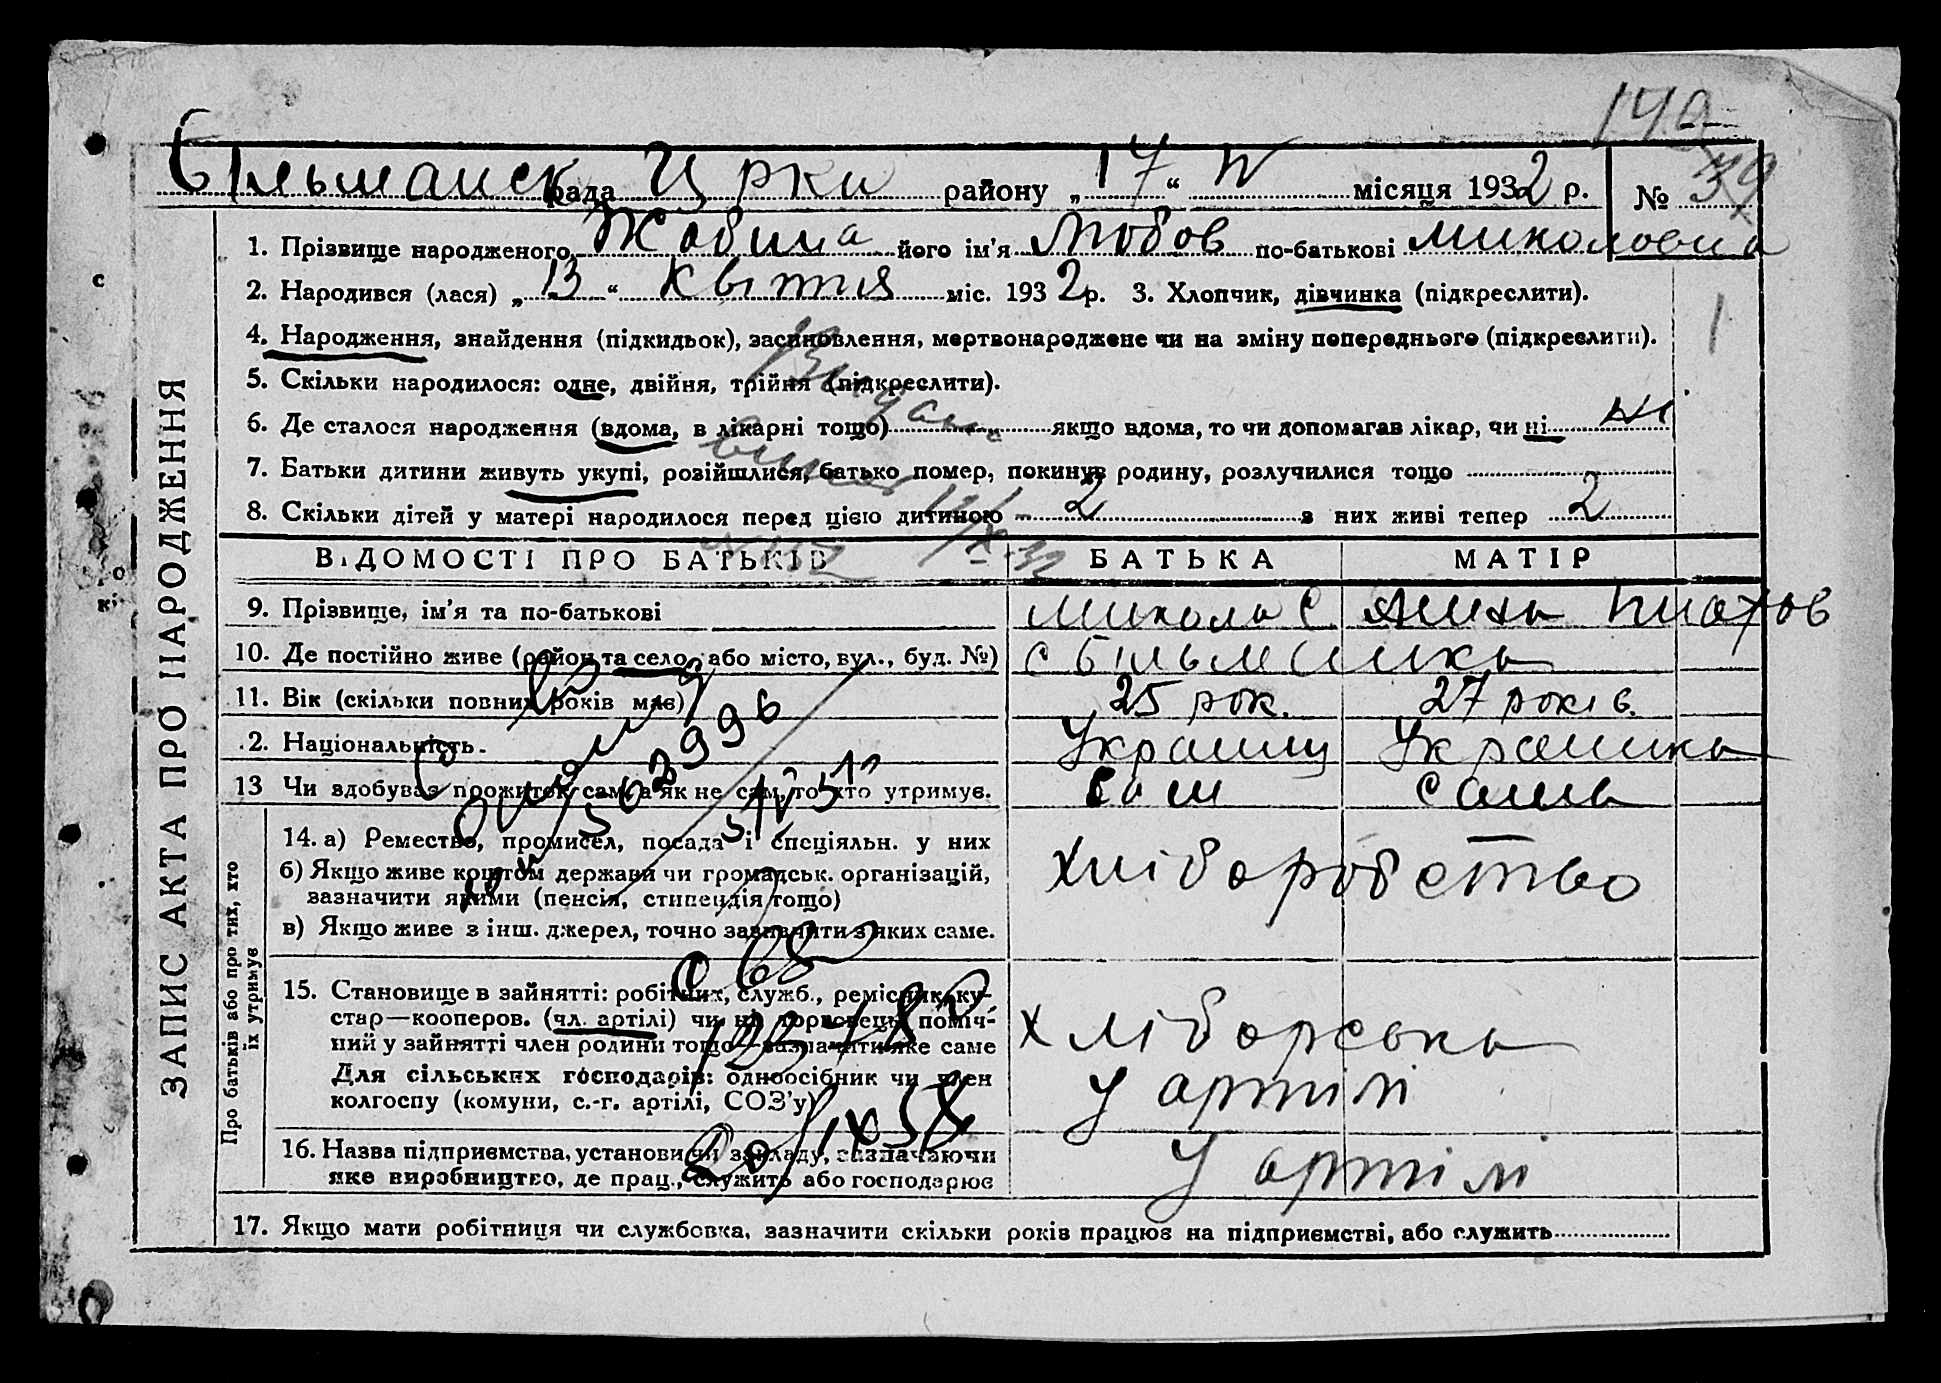 140
Більманск рада Црки району „17“ IV місяця 1932 р. № 39
1. Прізвище народженого Жабина його ім'я Любов по-батькові Миколовна
2. Народився (лася) „13“ Квітня міс. 1932 р. 3. Хлопчик, дівчинка (підкреслити).
4. Народження, знайдення (підкидьок), засиновлення, мертвонароджене чи на зміну попереднього (підкреслити).
1
5. Скільки народилося: одне, двійня, трійня (підкреслити).
6. Де сталося народження (вдома, в лікарні тощо) якщо вдома, то чи допомагав лікар, чи ні ні
7. Батьки дитини живуть укупі, розійшлися, батько помер, покинув родину, розлучилися тощо
8. Скільки дітей у матері народилося перед цією дитиною 2 з них живі тепер 2
ВІДОМОСТІ ПРО БАТЬКІВ БАТЬКА МАТІР
9. Прізвище, ім'я та по-батькові Микола С
10. Де постійно живе (район та село, або місто, вул., буд. №) с Більманка
11. Вік (скільки повних років має) 25 рок. 27 років.
12. Національність. Українц Українка
13 Чи здобуває прожиток сам, а як не сам, то хто утримує. Сам Сама
562996
ЗАПИС АКТА ПРО НАРОДЖЕННЯ
Про батьків або про тих, хто їх утримує
14. а) Ремество, промисел, посада і спеціяльн. у них
б) Якщо живе коштом держави чи громадськ. організацій,
зазначити якими (пенсія, стипендія тощо)
в) Якщо живе з інш. джерел, точно зазначити з яких саме.
хліборобство
15. Становище в зайнятті: робітник, служб., ремісник, ку-
стар—кооперов. (чл. артілі) чи ні, торговець, поміч-
ний у зайнятті член родини тощо—зазначити яке саме
Для сільських господарів: одноосібник чи член
колгоспу (комуни, с.-г. артілі, СОЗ'у)
хліборська
у артілі
16. Назва підприємства, установи чи закладу, зазначаючи
яке виробництво, де прац., служить або господарює
у артілі
17. Якщо мати робітниця чи службовка, зазначити скільки років працює на підприємстві, або служить